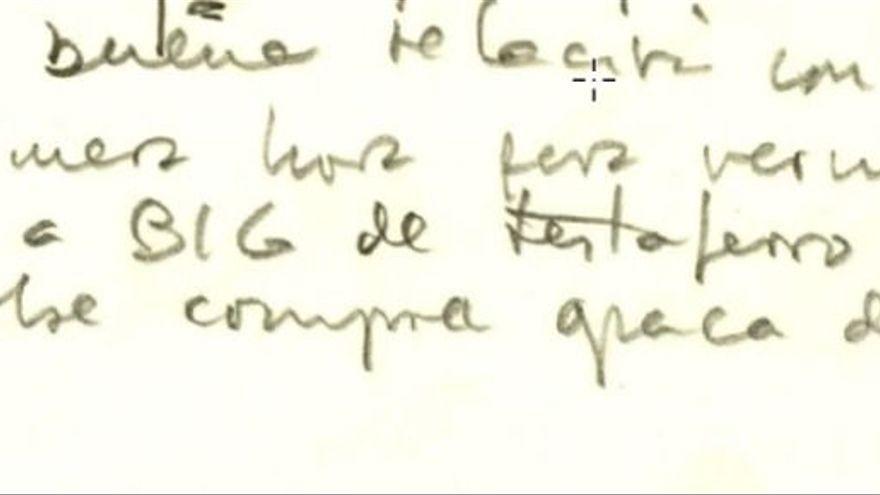 buena relación con
mera hora para vernu
a BIG de testaferro
se compra opaca d